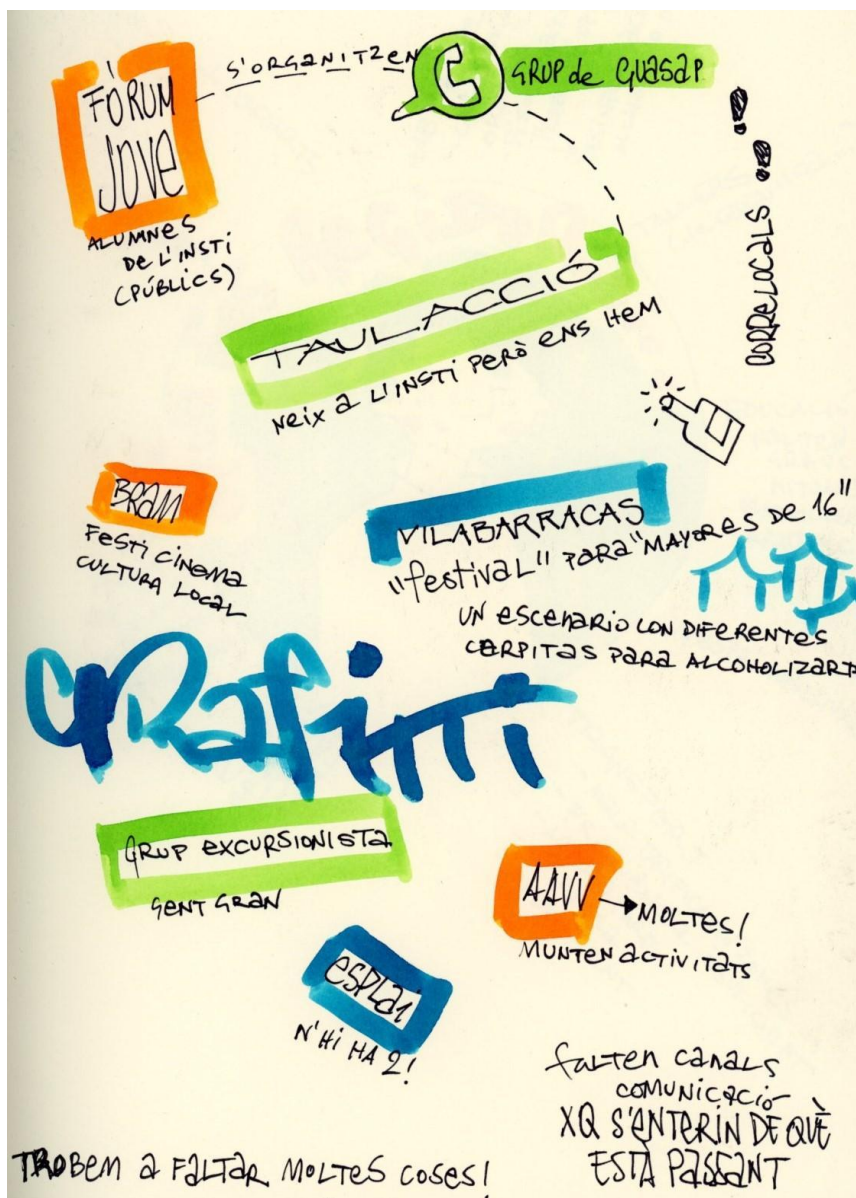 FÒRUM
JOVE
ALUMNES
DE L'INSTI
(PÚBLICS)
S'ORGANITZEN
GRUP de GUASAP
CORRELOCALS
TAULACCIÓ
NEIX a L'INSTI PERÒ ENS HEM
BRAM
FESTI CINEMA
CULTURA LOCAL
VILABARRACAS
"festival" PARA "MAYORES DE 16"
UN ESCENARIO CON DIFERENTES
CARPITAS PARA ALCOHOLIZARTE
GRafitti
GRUP EXCURSIONISTA
GENT GRAN
AAVV → MOLTES!
MUNTEN ACTIVITATS
ESPLAI
N'HI HA 2!
falten canals
comunicació
XQ S'ENTERIN DE QUÈ
ESTÀ PASSANT
TROBEM A FALTAR MOLTES COSES!